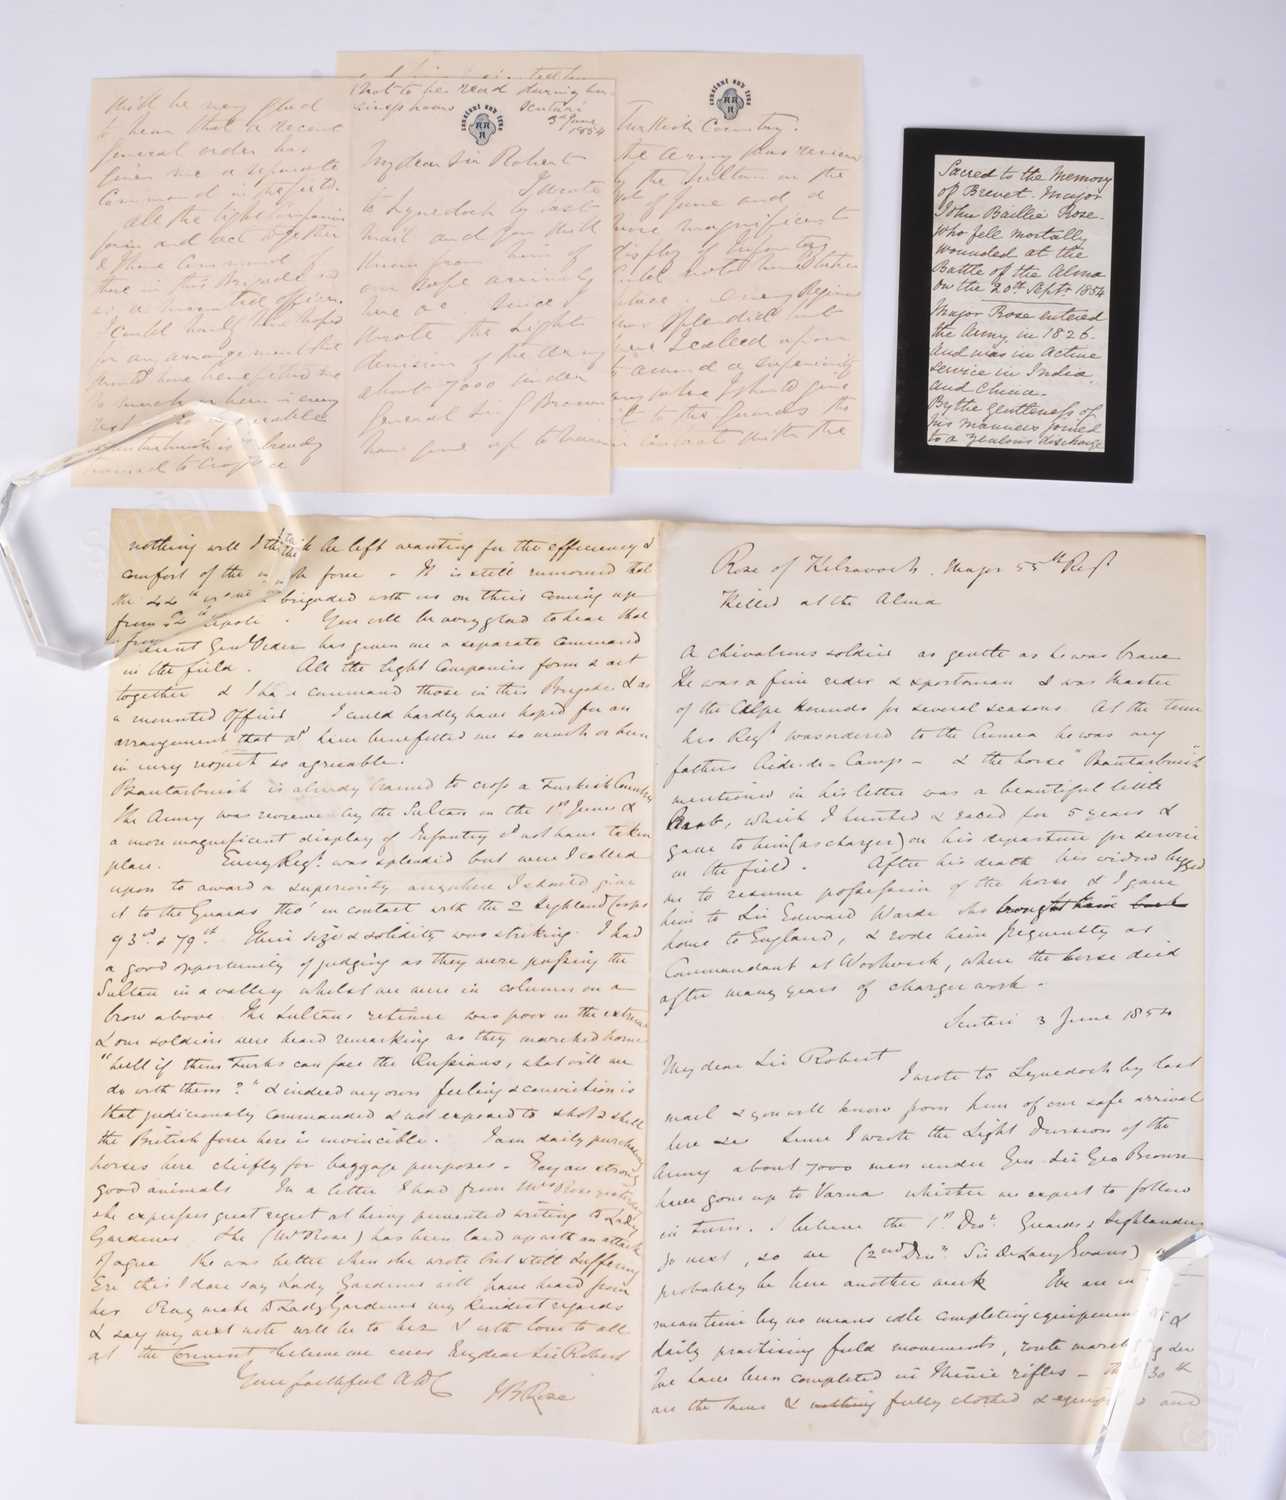 will be very glad
to hear that a recent
General order has
given me a separate
Command in the field.
all the light Companies
form and act together
& I have command of
those in this Brigade and
as a mounted officer.
I could hardly have hoped
for any arrangement
have benefitted me
so much or been in every
respect so agreeable
is already
trained to crop a
(Not to be read during
Scutari
3 June
1854
CONSTANT AND TRUE
RR
R
My dear Sir Robert
I wrote
to Lynedoch by last
mail and you will
know from him of
our safe arriving
here &c. Since I
wrote the Light
division of the Army
about 7000 under
General Sir G Brown
have gone up to Varna
CONSTANT AND TRUE
RR
R
Turkish Country.
the Army was review
by the Sultan on the
1st of June and a
more magnificent
display of Infantry
could not have taken
place. Every Regime
was splendid but
were I called upon
to award a superiority
anywhere I should give
it to the Guards tho
in contact with the
Sacred to the Memory
of Brevet. Major
John Baillie Rose.
who fell mortally
wounded at the
Battle of the Alma
on the 20th Sept. 1854
Major Rose entered
the Army in 1826.
and was in active
service in India
and China.
By the gentleness of
his manners joined
to a zealous discharge
nothing will I think be left wanting for the efficiency &
comfort of the force. It is still rumoured that
the 44th brigaded with us on their coming up
from . You will be very glad to hear that
Genl Order has given me a separate command
in the field. All the Light Companies form & act
together & I have command those in this Brigade & as
a mounted Officer I could hardly have hoped for an
arrangement that wd have benefitted me so much or been
in every respect so agreeable.
is already trained to crop a Turkish Country
The Army was review by the Sultan on the 1st June &
a more magnificent display of Infantry cd not have taken
place. Every Regt was splendid but were I called
upon to award a superiority anywhere I should give
it to the Guards tho' in contact with the 2 Highland Corps
93rd & 79th. Their size & solidity was striking. I had
a good opportunity of judging as they were passing the
Sultan in a valley whilst we were in column on a
brow above. The Sultans retinue was poor in the extreme
& our soldiers were heard remarking as they marched home
"well if these Turks can face the Russians, what will we
do with them?" & indeed my own feeling & conviction is
that judiciously commanded & not exposed to shot & shell
the British force here is invincible. I am daily purchasing
horses here chiefly for baggage purposes. They are strong
good animals In a letter I had from Mrs Rose yesterday
she expresses great regret at being prevented writing to Lady
Gardiner. She (Mrs Rose) has been laid up with an attack
of ague She was better when she wrote but still suffering
Ere this I dare say Lady Gardiner will have heard from
her. Pray make to Lady Gardiner my kindest regards
& say my next note will be to her & with love to all
at the Convent believe me ever My dear Sir Robert
Your faithful ADC
JB Rose
Rose of Kilravock. Major 55th Regt
Killed at the Alma
A chivalrous soldier as gentle as he was brave
He was a fine rider & sportsman & was Master
of the Calpe hounds for several seasons. At the time
his Regt was ordered to the Crimea he was my
fathers Aide-de-Camp - & the horse
mentioned in his letter was a beautiful little
Arab, which I hunted & raced for 5 years &
gave to him (as charger) on his departure for service
in the field. After his death his widow begged
me to resume possession of the horse & I gave
him to Sir Edward Warde who brought him back
home to England, & rode him frequently as
Commandant at Woolwich, where the horse died
after many years of charger work.
Scutari 3 June 1854
My dear Sir Robert
I wrote to Lynedoch by last
mail & you will know from him of our safe arrival
here &c Since I wrote the Light Division of the
Army about 7000 men under Gen Sir Geo Brown
have gone up to Varna whither we expect to follow
in turn. I believe the 1st Divn Guards & Highlanders
go next, so we (2nd Divn Sir De Lacy Evans) will
probably be here another week We are in
meantime by no means idle completing equipment &
daily practising field movements, route marching &c
We have been completed in Minie rifles - the 30th
are the same & nothing fully clothed & and